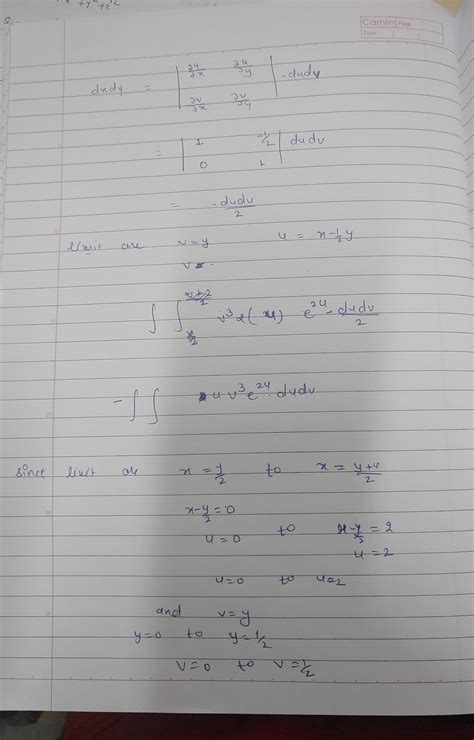 x² + y² + z²
8.
Camlin Page
Date
dxdy = | ∂u/∂x ∂u/∂y | -dudv
| ∂v/∂x ∂v/∂y |
= | 2 -1/2 | dudv
| 0 1 |
= -dudv/2
limit are v=y u = x-1/2y
v=.
∫ ∫ v³ 2(u) e^2u - dudv/2
- ∫ ∫ u v³ e^2u . dudv
since limit are x = y/2 to x = y+4/2
x-y/2 = 0 to x-y/2 = 2
u=0 u=2
u=0 to u=2
and v=y
y=0 to y=1/2
v=0 to v=1/2